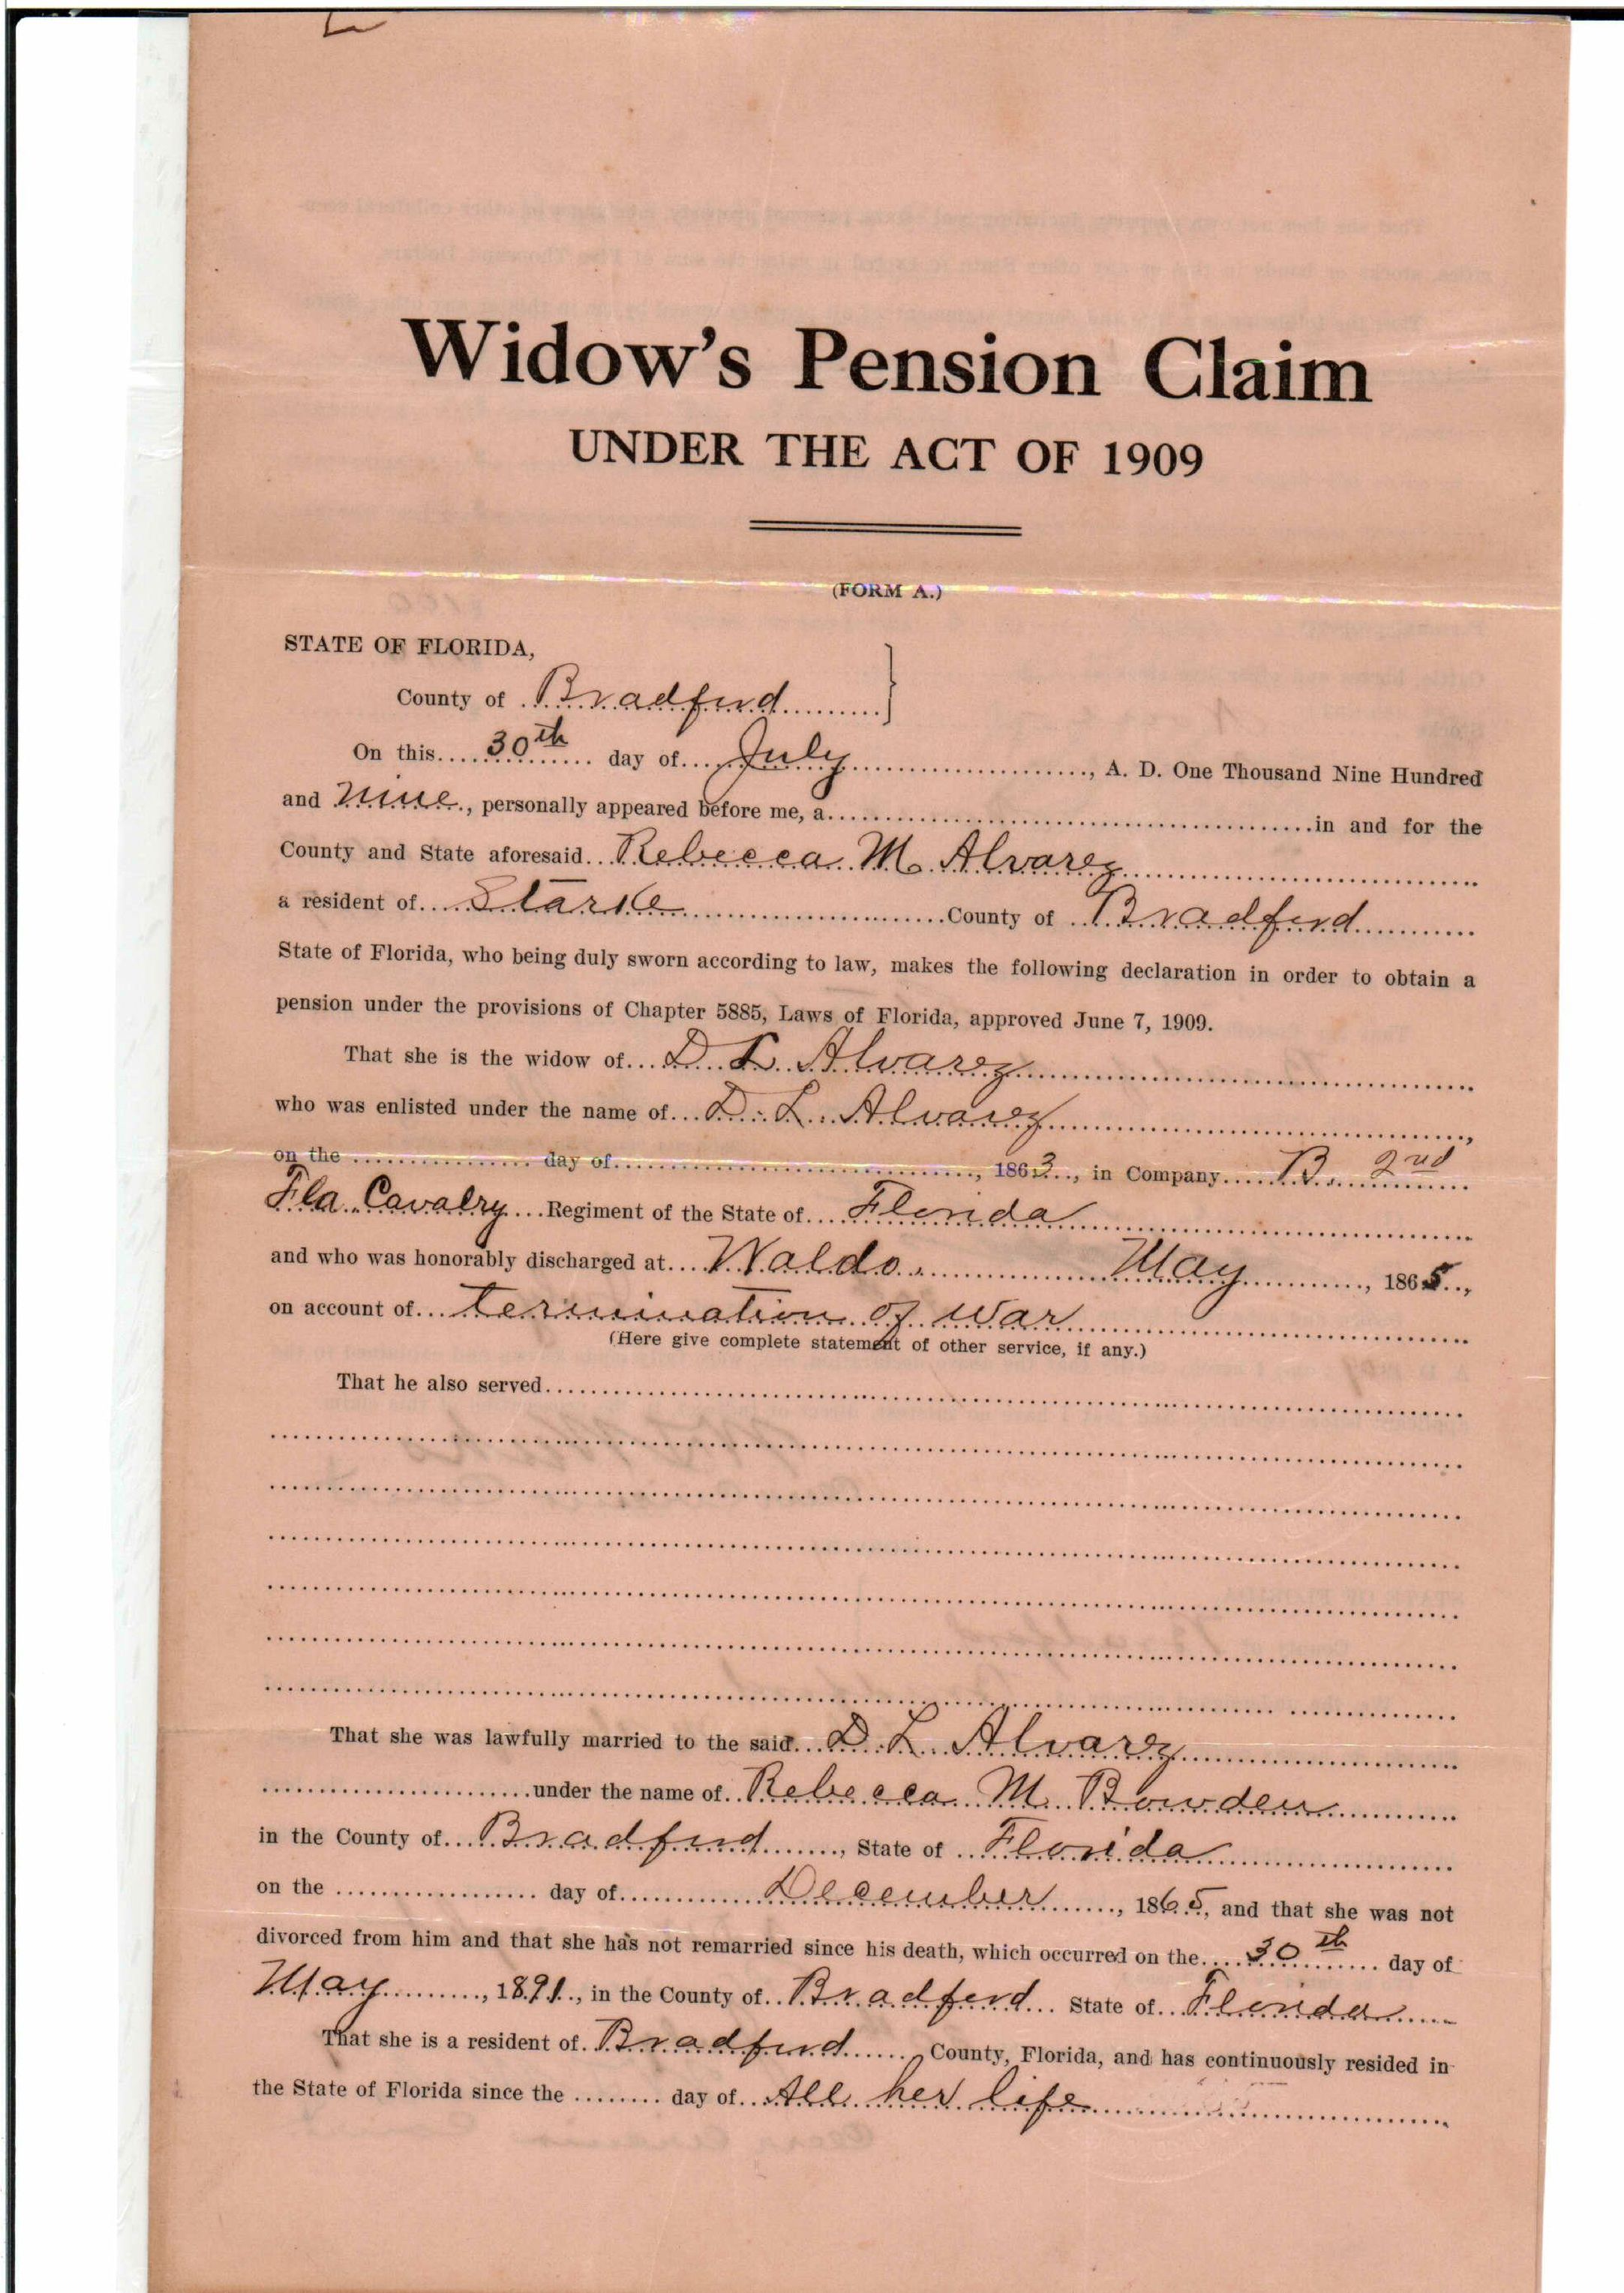 Widow's Pension Claim
UNDER THE ACT OF 1909
(FORM A.)
STATE OF FLORIDA,
County of Bradford
On this 30th day of July, A. D. One Thousand Nine Hundred
and Nine, personally appeared before me, a in and for the
County and State aforesaid Rebecca M. Alvarez
a resident of Starke County of Bradford
State of Florida, who being duly sworn according to law, makes the following declaration in order to obtain a
pension under the provisions of Chapter 5885, Laws of Florida, approved June 7, 1909.
That she is the widow of D L Alvarez
who was enlisted under the name of D. L. Alvarez,
on the day of, 1863, in Company B. 2nd
Fla Cavalry Regiment of the State of Florida
and who was honorably discharged at Waldo May, 1865,
on account of termination of War
(Here give complete statement of other service, if any.)
That he also served
That she was lawfully married to the said D. L. Alvarez
under the name of Rebecca M. Bowden
in the County of Bradford, State of Florida
on the day of December, 1865, and that she was not
divorced from him and that she has not remarried since his death, which occurred on the 30th day of
May, 1891, in the County of Bradford State of Florida
That she is a resident of Bradford County, Florida, and has continuously resided in
the State of Florida since the day of All her life